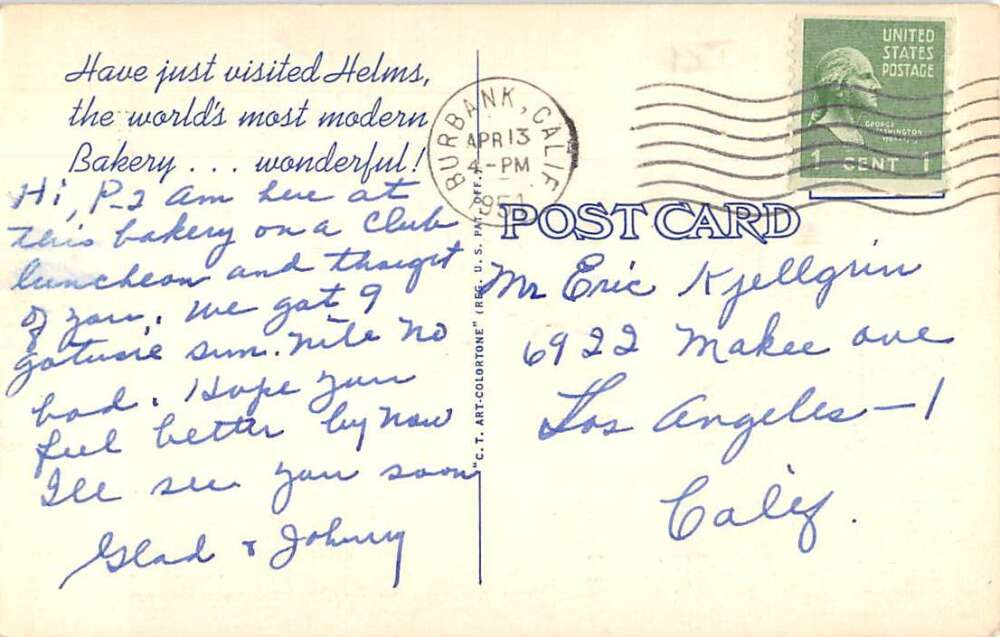 Have just visited Helms,
the world's most modern
Bakery . . . wonderful!
Hi, P-J am here at
this bakery on a Club
luncheon and thought
of you. We got 9
sun. Nite No
bad. Hope you
feel better by now
I'll see you soon
Glad & Johnny
"C. T. ART-COLORTONE" (REG. U. S. PAT. OFF.)
BURBANK, CALIF.
APR 13
4-PM
1951
UNITED
STATES
POSTAGE
GEORGE
WASHINGTON
1 CENT 1
POST CARD
Mr Eric Kjellgrin
6922 Makee ave
Los Angeles-1
Calif.